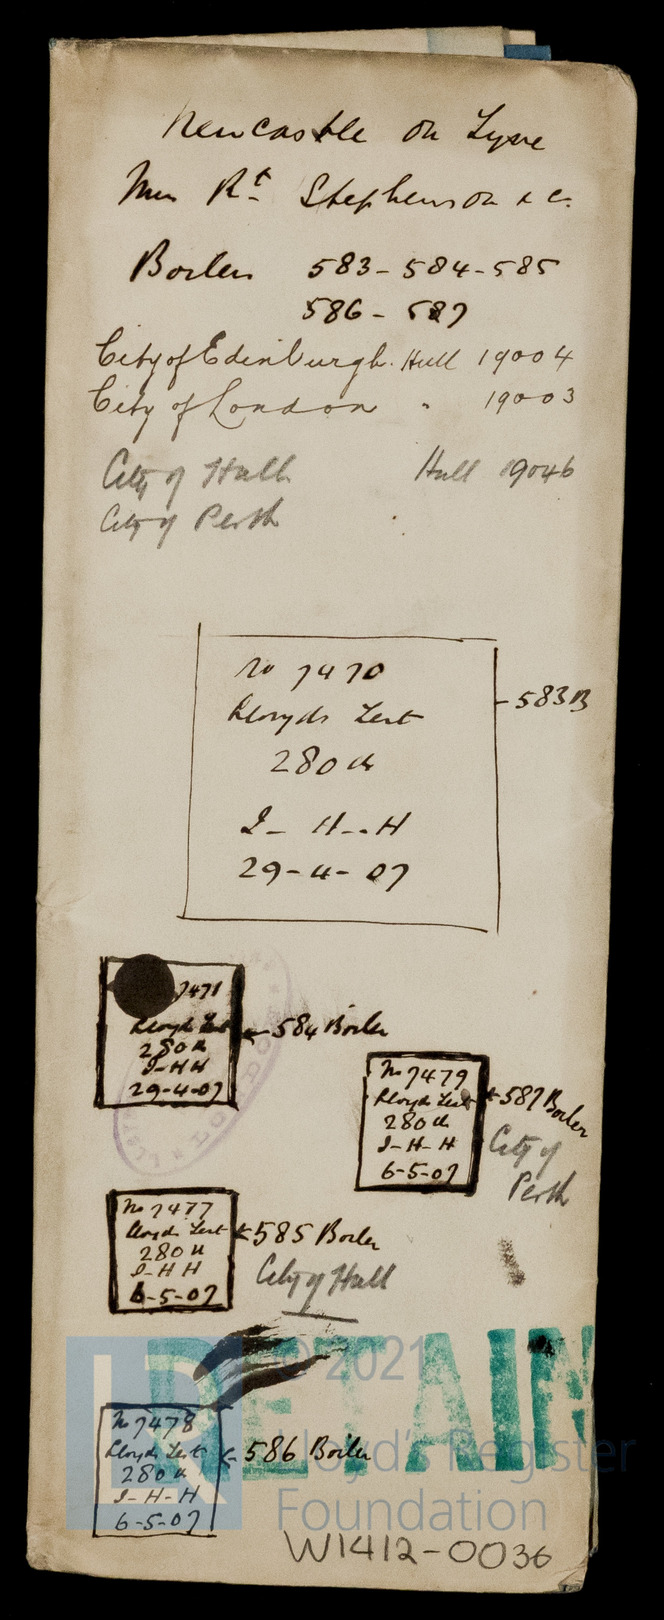 Newcastle on Tyne
Mess Rt Stephenson & c.
Boilers 583-584-585
586-587
City of Edinburgh. Hull 19004
City of London " 19003
City of Hull Hull 19046
City of Perth
No 7470
Lloyds Test
280 lb
J-H-H
29-4-07
-583B
7471
Lloyds Test
280 lb
J-HH
29-4-07
584 Boiler
No 7479
Lloyds Test
280 lb
J-H-H
6-5-07
587 Boiler
City of
Perth
No 7477
Lloyds Test
280 lb
J-HH
6-5-07
585 Boiler
City of Hull
RETAIN
© 2021
Lloyd's Register
Foundation
No 7478
Lloyds Test
280 lb
J-H-H
6-5-07
586 Boiler
W1412-0036